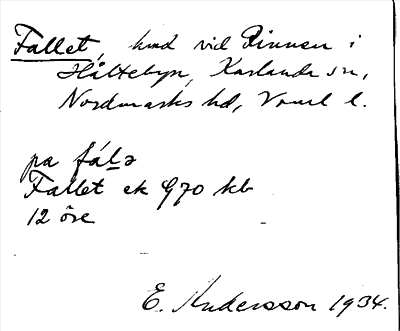 Fallet, hmd vid Pinnen i
Håltebyn, Karlanda sn,
Nordmarks hd, Värml l.
pa fál̲ə
Fallet ek G70 kb
12 öre
E. Andersson 1934.